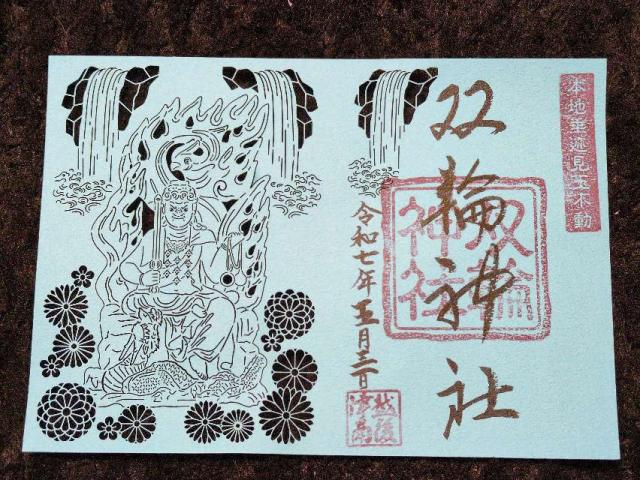 本地垂迹見玉不動
双輪神社
双輪
神社
令和七年五月三日
越後
津南